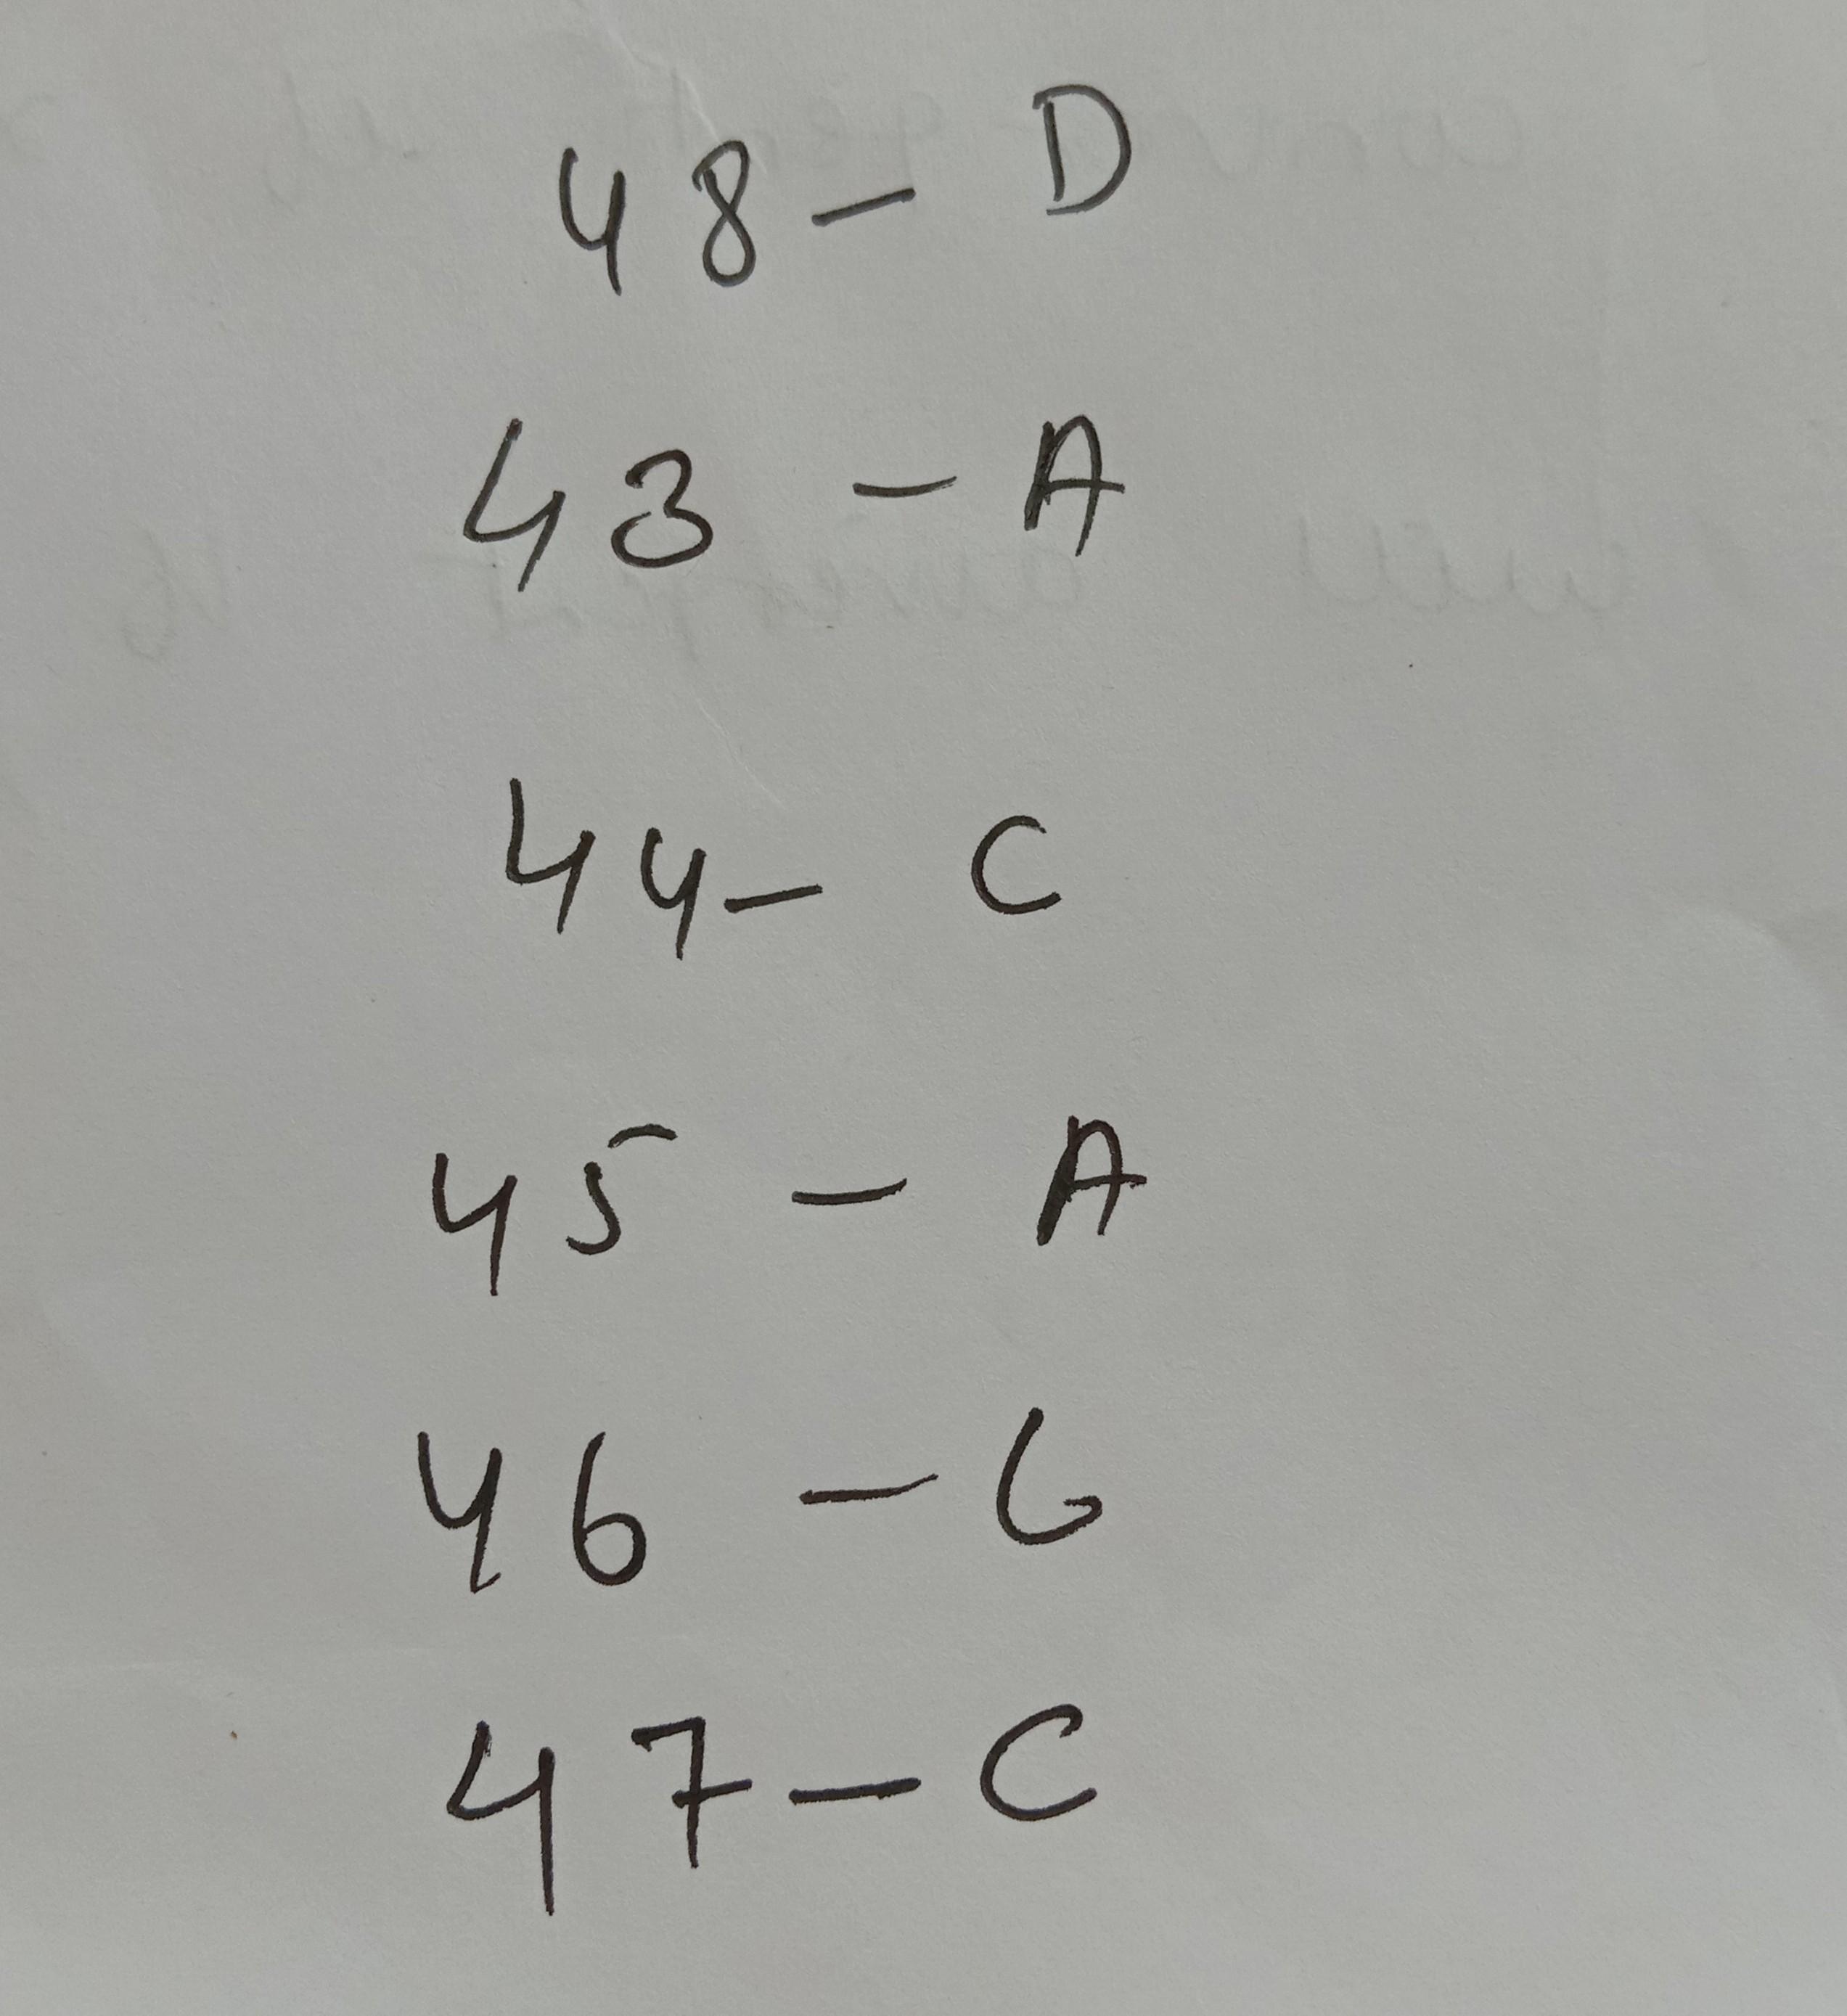 48 - D
43 - A
44 - C
45 - A
46 - G
47 - C